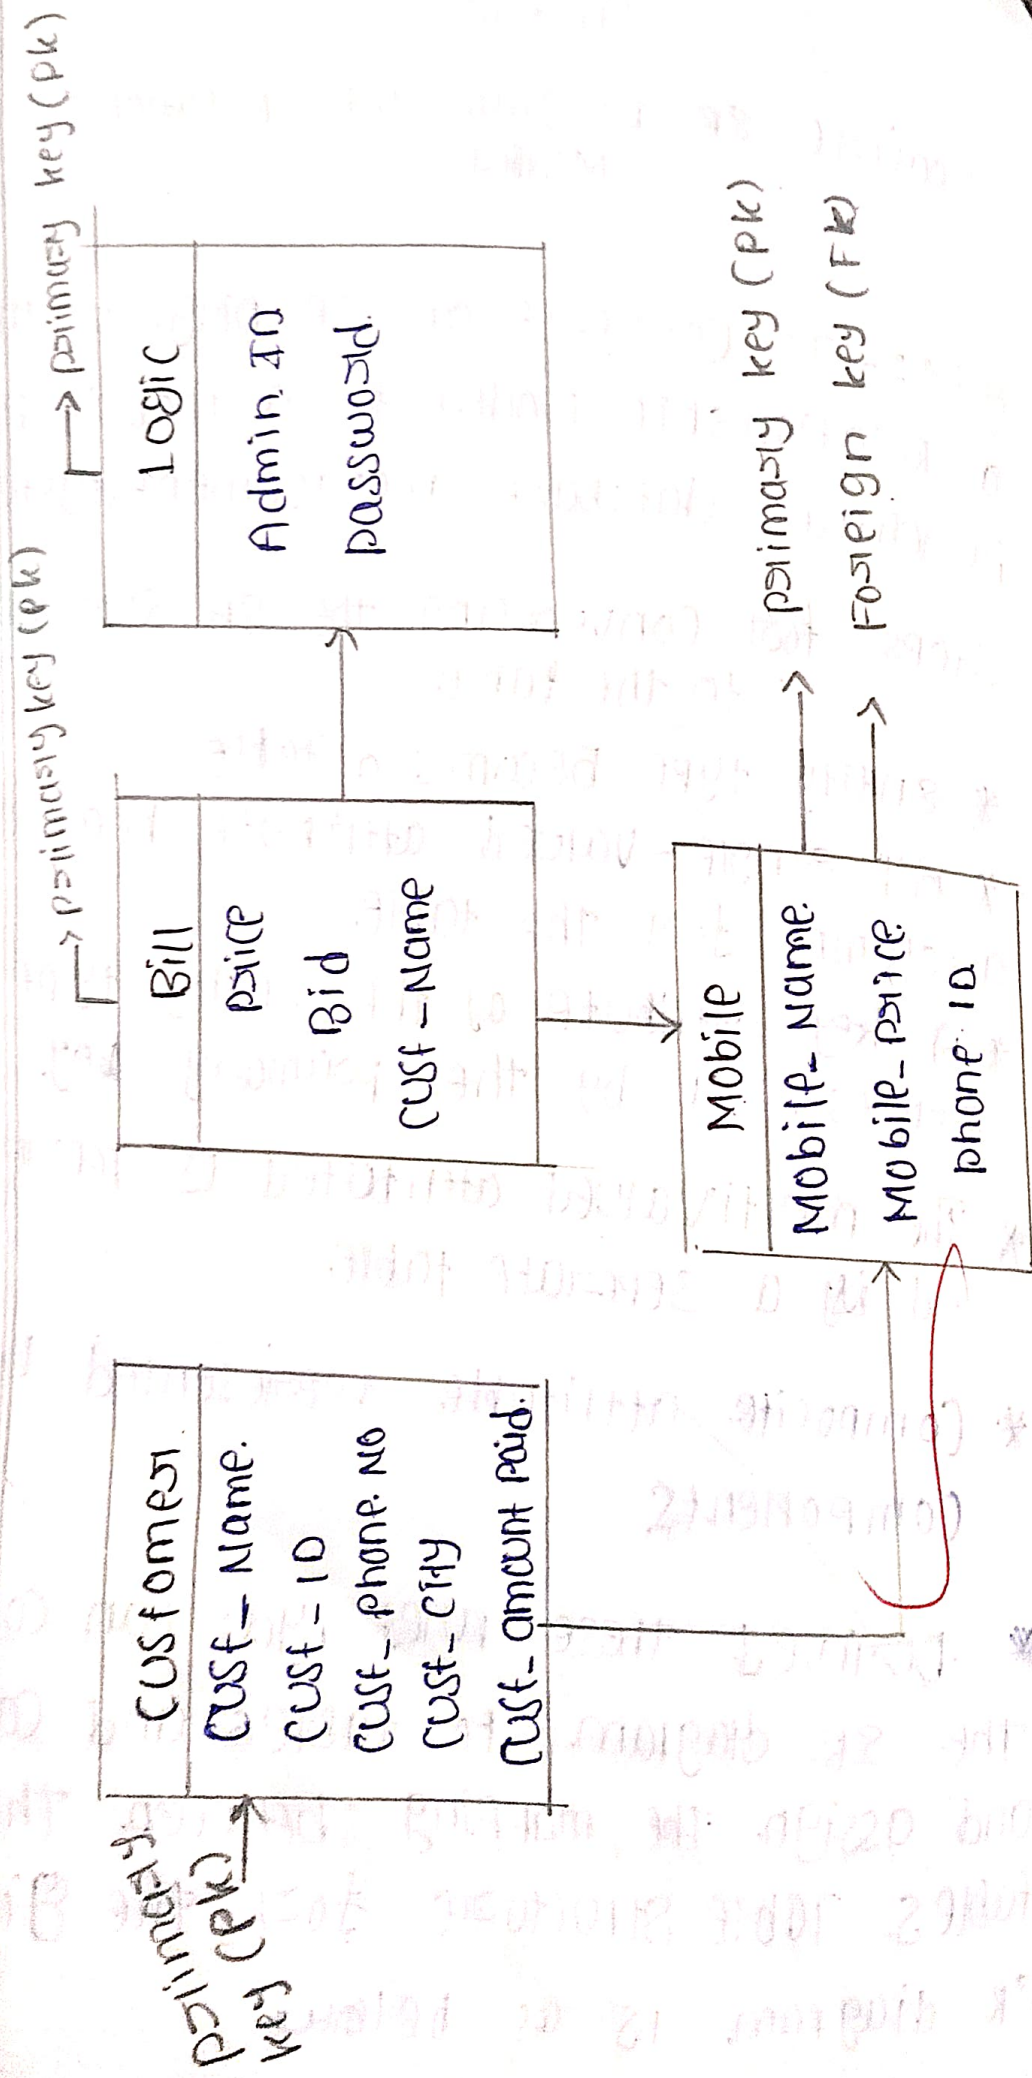 primary key (PK)
Customer
Cust_Name.
Cust-ID
Cust_Phone.No
Cust_City
Cust_amount Paid.
primary key (PK)
Bill
Price
Bid
Cust-Name
primary key (PK)
Logic
Admin.ID
password.
Mobile
Mobile_Name.
Mobile_Price.
phone ID
primary key (PK)
Foreign key (FK)